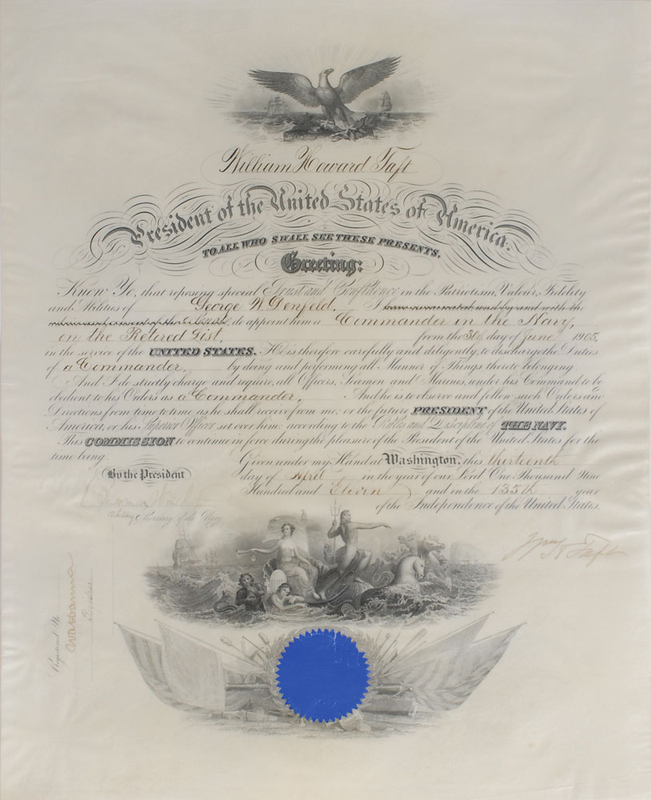 William Howard Taft
President of the United States of America.
TO ALL WHO SHALL SEE THESE PRESENTS,
Greeting:
Know Ye, that reposing special Trust and Confidence in the Patriotism, Valour, Fidelity
and Abilities of George W. Denfeld. I have nominated and by and with the
advice and consent of the Senate, do appoint him a Commander in the Navy,
on the Retired List, from the 30th day of June 1905,
in the service of the UNITED STATES. He is therefore carefully and diligently to discharge the Duties
of a Commander, by doing and performing all Manner of Things thereto belonging
And I do strictly charge and require all Officers, Seamen and Marines under his Command to be
obedient to his Orders as a Commander. And he is to observe and follow such Orders and
Directions from time to time as he shall receive from me, or the future PRESIDENT of the United States of
America, or his Superior Officer set over him according to the Rules and Discipline of THE NAVY.
This COMMISSION to continue in force during the pleasure of the President of the United States for the
time being.
Given under my Hand at Washington, this thirteenth
day of April in the year of our Lord One Thousand Nine
Hundred and Eleven and in the 135th year
of the Independence of the United States.
By the President
Wm H Taft
Acting Secretary of the Navy
Registered No